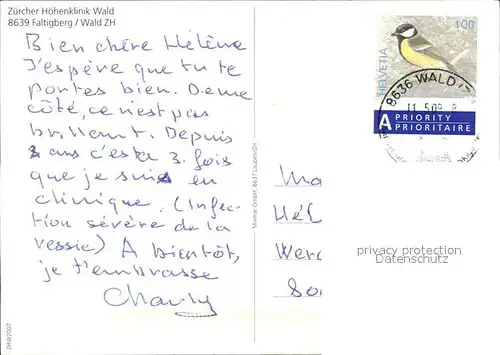 Zürcher Höhenklinik Wald
8639 Faltigberg / Wald ZH
Bien chère Hélène
J'espère que tu te
portes bien. De mon
côté, ce n'est pas
brillant. Depuis
ans c'est 3. fois
que je suis en
clinique. (Infec-
tion sévère de la
vessie) A bientôt,
je t'embrasse
Charly
ZHW2007
Mumar GmbH, 8637 Laupen/ZH
100
HELVETIA
8636 WALD
11.5.09. 8
A PRIORITY
PRIORITAIRE
Hél
privacy protection
Datenschutz